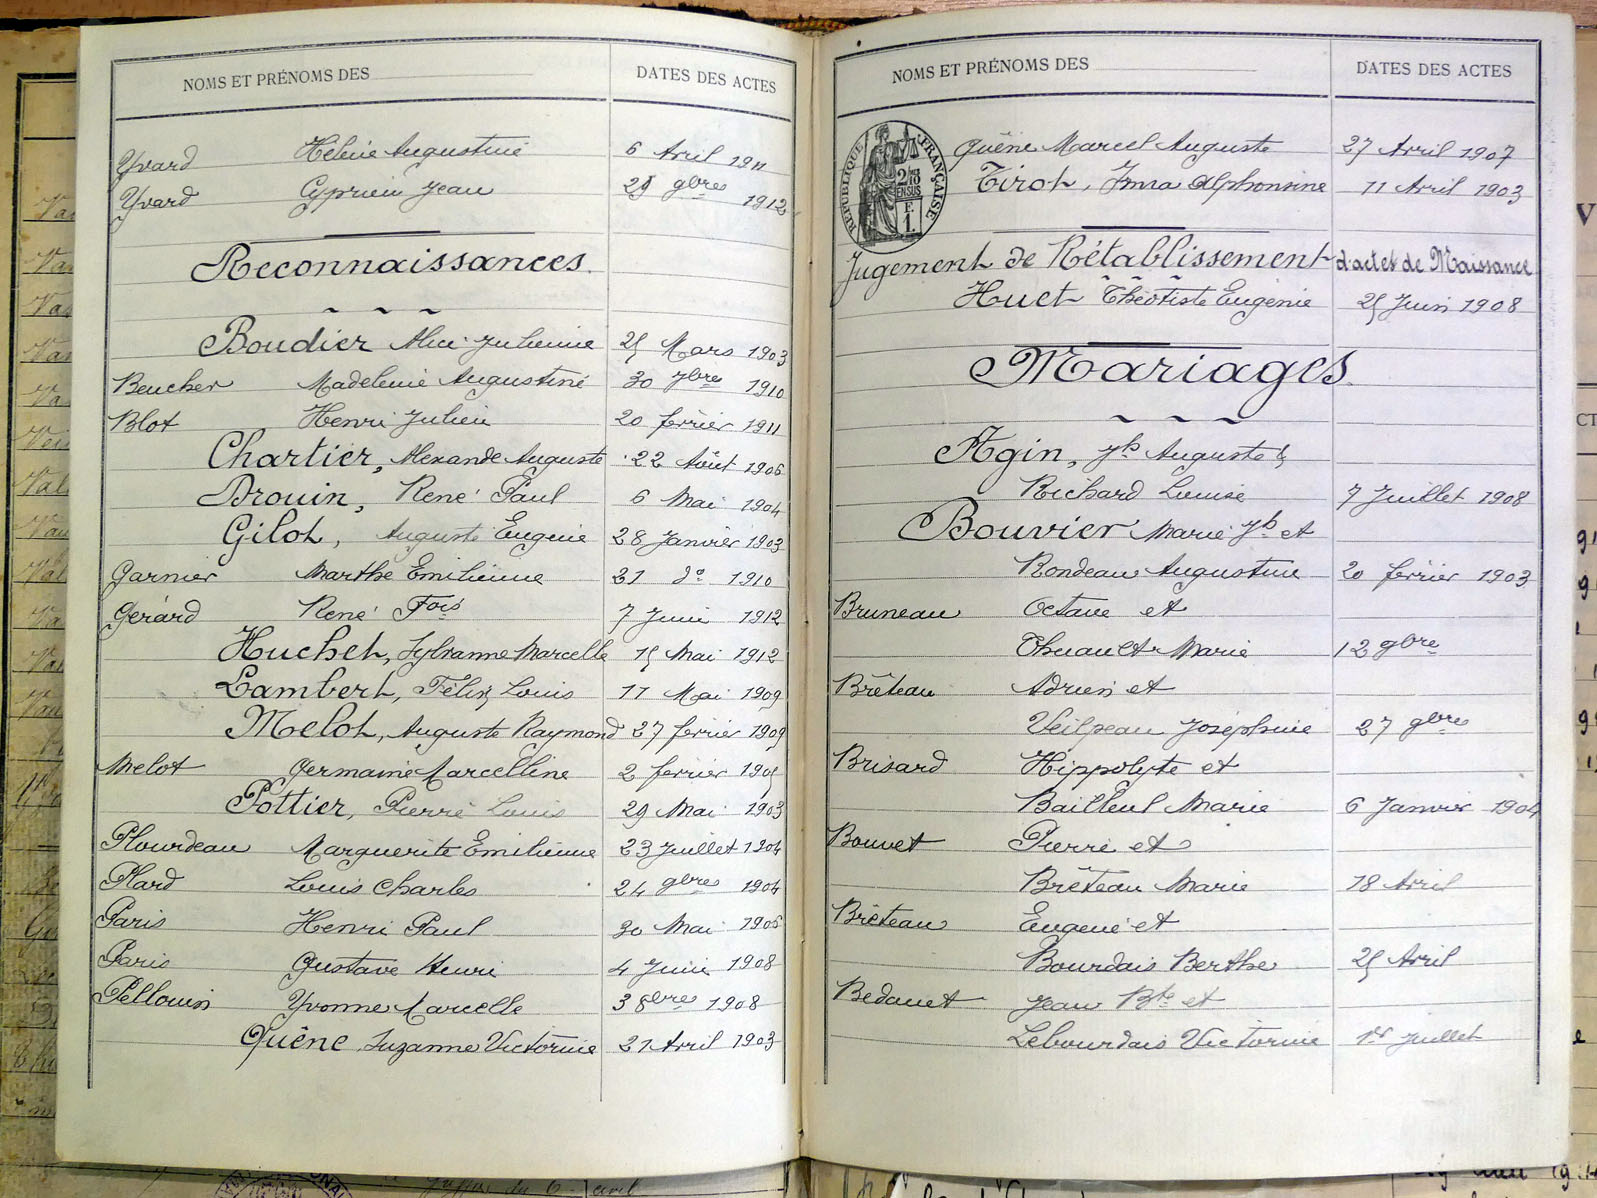 NOMS ET PRÉNOMS DES
DATES DES ACTES
Yvard Hélène Augustine 6 Avril 1911
Yvard Cyprien Jean 29 9bre 1912
Reconnaissances.
Boudier Alice Julienne 25 Mars 1903
Beucher Madeleine Augustine 30 7bre 1910
Blot Henri Julien 20 février 1911
Chartier, Alexandre Auguste 22 Août 1906
Drouin, René Paul 6 Mai 1904
Gilot, Auguste Eugène 28 Janvier 1903
Garnier Marthe Emilienne 31 do 1910
Gérard René Fois 7 Juin 1912
Huchet, Sylvanne Marcelle 15 Mai 1912
Lambert, Félix Louis 11 Mai 1909
Melot, Auguste Raymond 27 février 1909
Melot Germaine Marcelline 2 février 1905
Pottier, Pierre Louis 29 Mai 1903
Plourdeau Marguerite Emilienne 23 Juillet 1904
Plard Louis Charles 24 9bre 1904
Paris Henri Paul 30 Mai 1906
Paris Gustave Henri 4 Juin 1908
Pellouin Yvonne Marcelle 3 8bre 1908
Quêne Suzanne Victorine 21 Avril 1903
NOMS ET PRÉNOMS DES
DATES DES ACTES
RÉPUBLIQUE FRANÇAISE
2/10
EN SUS
F.
1.
Quêne Marcel Auguste 27 Avril 1907
Tirot, Irma Alphonsine 11 Avril 1903
Jugement de Rétablissement d'actes de Naissance
Huet Théotiste Eugénie 25 Juin 1908
Mariages.
Agin, Jh Auguste &
Richard Louise 7 Juillet 1908
Bouvier Marie Jh et
Rondeau Augustine 20 février 1903
Bruneau Octave et
Thuault Marie 12 9bre
Brêteau Adrien et
Veilpeau Joséphine 27 9bre
Brisard Hippolyte et
Bailleul Marie 6 Janvier 1904
Bouvet Pierre et
Brêteau Marie 18 Avril
Brêteau Eugène et
Bourdais Berthe 25 Avril
Bedouet Jean Bte et
Lebourdais Victorine 1er Juillet